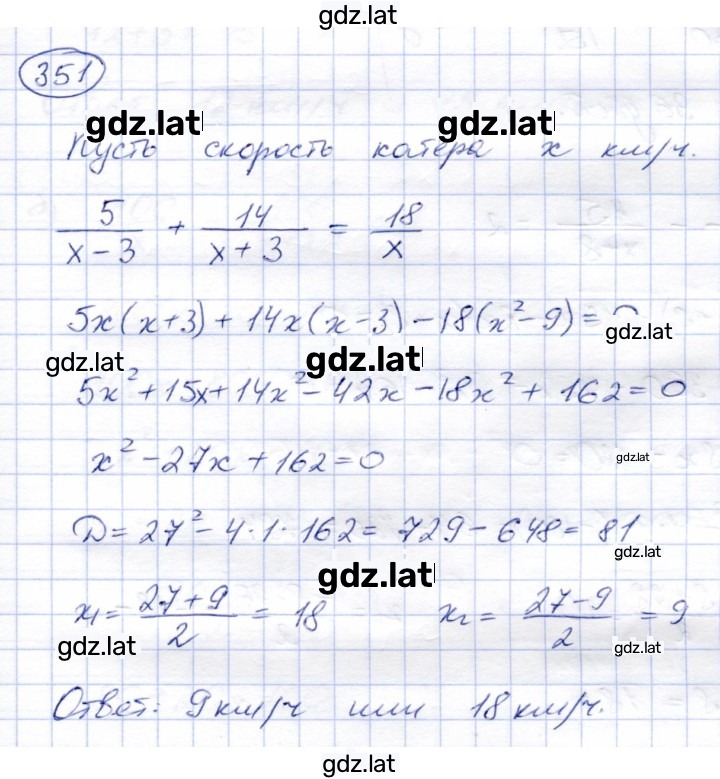 gdz.lat
351
gdz.lat gdz.lat
Пусть скорость катера x км/ч.
5/(x-3) + 14/(x+3) = 18/x
5x(x+3) + 14x(x-3) - 18(x²-9) = 0
gdz.lat gdz.lat gdz.lat
5x² + 15x + 14x² - 42x - 18x² + 162 = 0
x² - 27x + 162 = 0
gdz.lat
D = 27² - 4·1·162 = 729 - 648 = 81
gdz.lat
gdz.lat
x₁ = (27+9)/2 = 18 x₂ = (27-9)/2 = 9
gdz.lat gdz.lat
Ответ: 9 км/ч или 18 км/ч.
gdz.lat